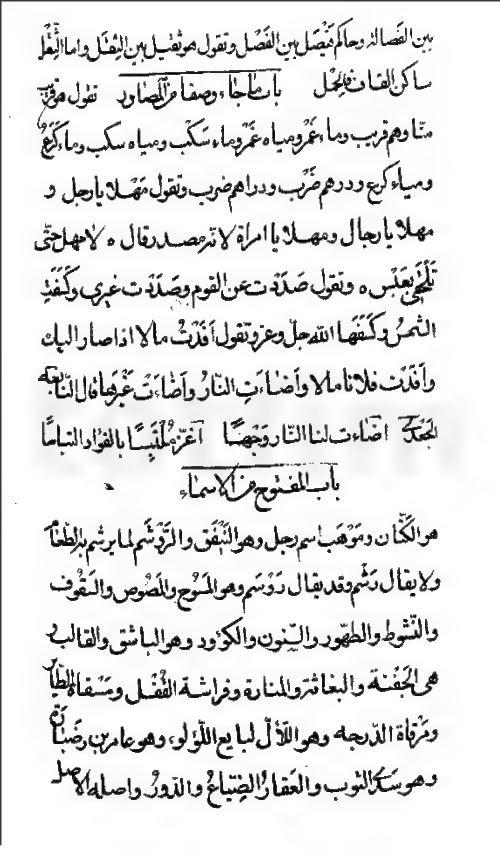 بين الفصالة وحاكم فيصل بين الفصل وتقول هو ثقيل بين الثقل واما الثقل
ساكن القاف فالحمل باب ما جاء وصفا من المصادر تقول هو
منا وهم قريب وماء غمر ومياه غمر وماء سكب ومياه سكب وماء كرع
ومياه كرع ودرهم ضرب ودراهم ضرب وتقول مهلا يا رجل و
مهلا يا رجال ومهلا يا امرأة لانه مصدر قال لا مهل حتى
تلحقي بعنس وتقول صددت عن القوم وصددت غيري وكسفت
الشمس وكسفها الله جل وعز وتقول افدت مالا اذا صار اليك
وافدت فلانا مالا واضاءت النار واضاءت غيرها قال النابغة
الجعدي اضاءت لنا النار وجها اغر ملتبسا بالفؤاد التباسا
باب المفتوح من الاسماء
هو الكتان وموهب اسم رجل وهو النيفق والروشم لما يرشم به الطعام
ولا يقال رشم وقد يقال روسم وهو المسوح واللصوص والسفوف
والنشوط والطهور والسنون والكؤود وهو الباشق والقالب و
هي الجفنة والبغاثة والمنارة وفراشة القفل ومسقاة الطائر
ومرقاة الدرجه وهو اللأل لبايع اللؤلوء وهو عامر بن ضبارة
وهو سدى الثوب والعقار الضياع والدور واصله الاصل